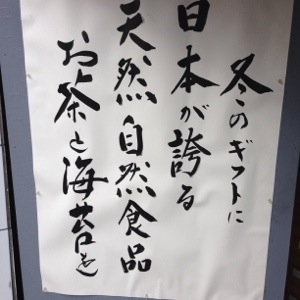 冬のギフトに
日本が誇る
天然自然食品
お茶と海苔を